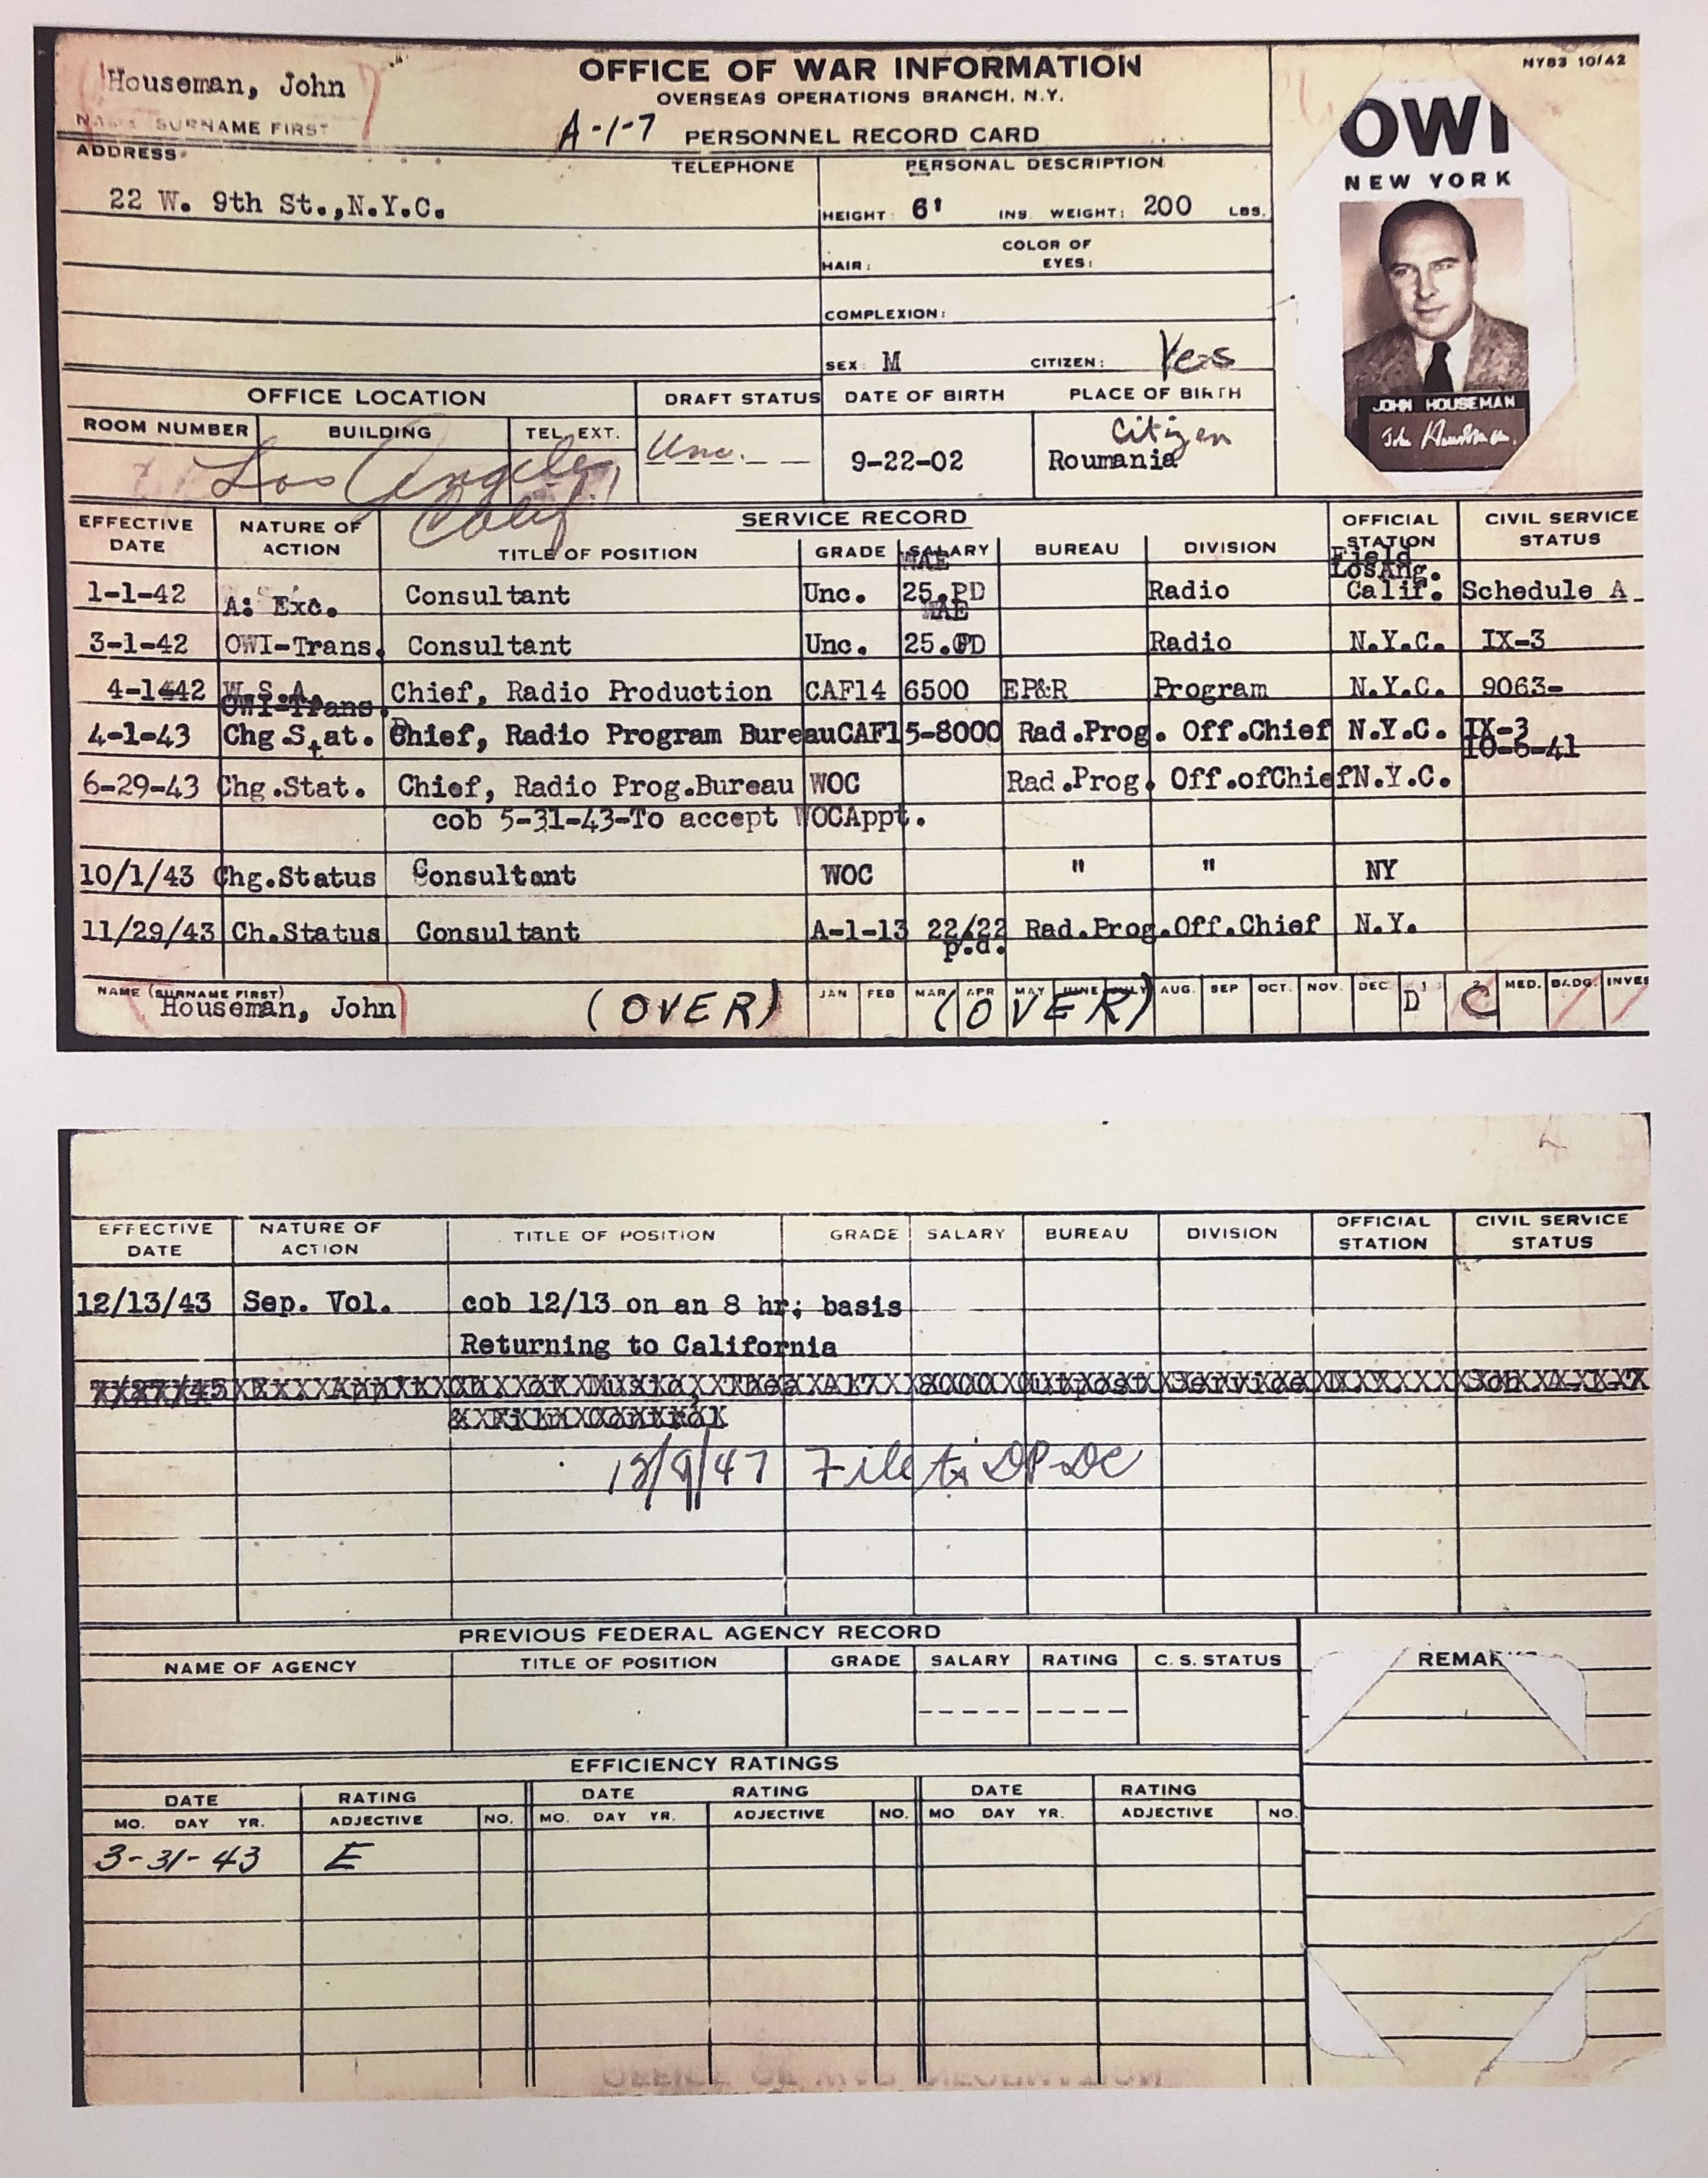 Houseman, John
NAME SURNAME FIRST
OFFICE OF WAR INFORMATION
OVERSEAS OPERATIONS BRANCH, N.Y.
A-1-7 PERSONNEL RECORD CARD
NYB3 10/42
ADDRESS
22 W. 9th St.,N.Y.C.
TELEPHONE
PERSONAL DESCRIPTION
HEIGHT: 6' INS. WEIGHT: 200 LBS.
HAIR: COLOR OF EYES:
COMPLEXION:
SEX: M CITIZEN: Yes
OWI
NEW YORK
JOHN HOUSEMAN
John Houseman.
OFFICE LOCATION DRAFT STATUS DATE OF BIRTH PLACE OF BIRTH
ROOM NUMBER BUILDING TEL. EXT.
Los Angeles
Calif.
Unc.
9-22-02
Citizen
Roumania
SERVICE RECORD
EFFECTIVE DATE NATURE OF ACTION TITLE OF POSITION GRADE SALARY BUREAU DIVISION OFFICIAL STATION CIVIL SERVICE STATUS
WAE Field
LosAng.
1-1-42 A: Exc. Consultant Unc. 25.PD Radio Calif. Schedule A
WAE
3-1-42 OWI-Trans. Consultant Unc. 25.PD Radio N.Y.C. IX-3
4-1-42 W.S.A. Chief, Radio Production CAF14 6500 EP&R Program N.Y.C. 9063-
OWI-Trans. IX-3
4-1-43 Chg.Stat. Chief, Radio Program BureauCAF15-8000 Rad.Prog. Off.Chief N.Y.C.
10-6-41
6-29-43 Chg.Stat. Chief, Radio Prog.Bureau WOC Rad.Prog. Off.ofChiefN.Y.C.
cob 5-31-43-To accept WOCAppt.
10/1/43 Chg.Status Consultant WOC " " NY
11/29/43 Ch.Status Consultant A-1-13 22/22 Rad.Prog.Off.Chief N.Y.
p.d.
NAME (SURNAME FIRST)
Houseman, John (OVER) (OVER)
JAN FEB MAR APR MAY JUNE JULY AUG. SEP OCT. NOV. DEC. D 1 C 2 MED. BADG. INVES
EFFECTIVE DATE NATURE OF ACTION TITLE OF POSITION GRADE SALARY BUREAU DIVISION OFFICIAL STATION CIVIL SERVICE STATUS
12/13/43 Sep. Vol. cob 12/13 on an 8 hr; basis
Returning to California
12/9/47 File to DP-DC
PREVIOUS FEDERAL AGENCY RECORD
NAME OF AGENCY TITLE OF POSITION GRADE SALARY RATING C. S. STATUS
REMARKS
EFFICIENCY RATINGS
DATE RATING DATE RATING DATE RATING
MO. DAY YR. ADJECTIVE NO. MO. DAY YR. ADJECTIVE NO. MO DAY YR. ADJECTIVE NO.
3-31-43 E